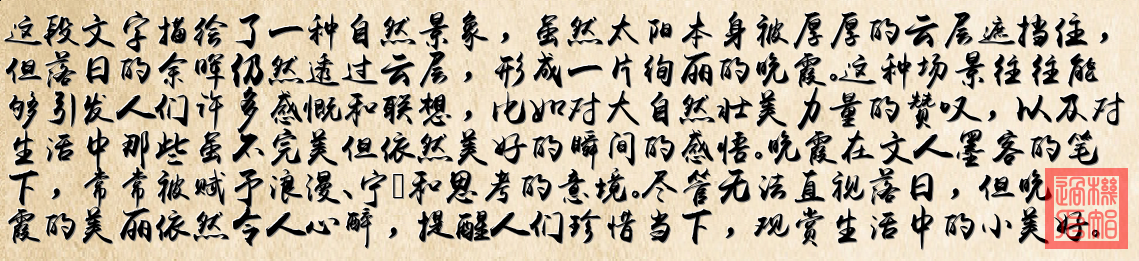 这段文字描绘了一种自然景象，虽然太阳本身被厚厚的云层遮挡住，
但落日的余晖仍然透过云层，形成一片绚丽的晚霞。这种场景往往能
够引发人们许多感慨和联想，比如对大自然壮美力量的赞叹，以及对
生活中那些虽不完美但依然美好的瞬间的感悟。晚霞在文人墨客的笔
下，常常被赋予浪漫、宁和思考的意境。尽管无法直视落日，但晚
霞的美丽依然令人心醉，提醒人们珍惜当下，观赏生活中的小美好。